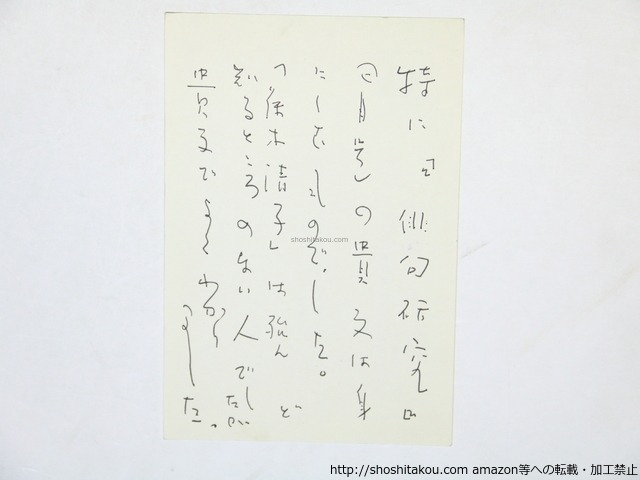 特に『俳句研究四
月号』の貴文は身
にしみたのでした。
「藤木清子」は殆んど
知るところのない人でしたが
貴文でよくわかり
ました。
shoshitakou.com
http://shoshitakou.com amazon等への転載・加工禁止